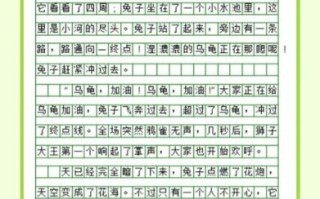 它看看了四周；兔子坐在了一个小水池里，这
里是小河的尽头。兔子站了起来，旁边有一条
路，路通向一终点！湿漉漉的乌龟正在那爬呢！
兔子赶紧冲过去。
“乌龟，加油！乌龟，加油！”大家正在给
乌龟加油，兔子飞奔过去，超过了乌龟，冲过
了终点线。全场突然鸦雀无声，几秒后，狮子
大王第一个响起了掌声，大家也开始欢呼。
天已经完全暗了下来，兔子点燃了花炮，
天空变成了花海。不过只有一个人不开心，它